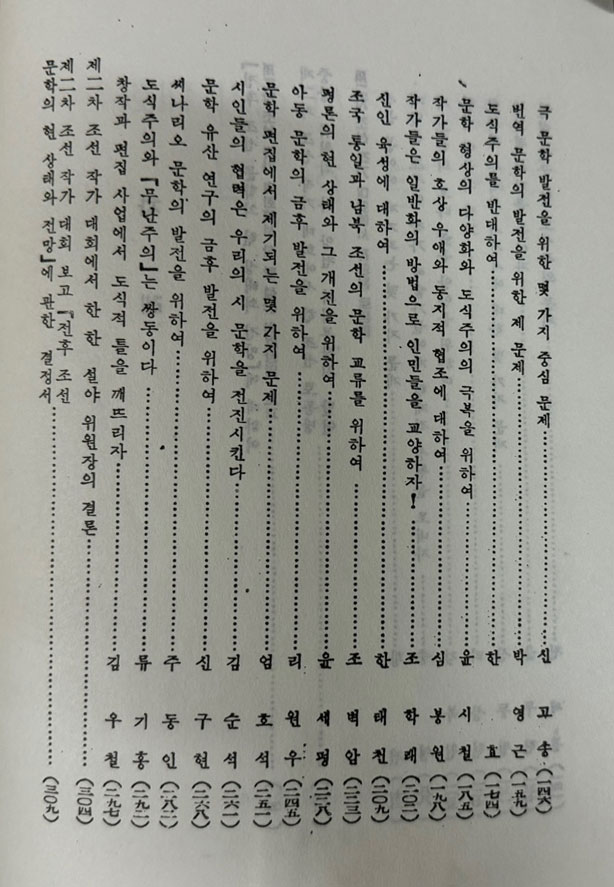 극 문학 발전을 위한 몇 가지 중심 문제……신 고송 (一四六)
번역 문학의 발전을 위한 제 문제……박 영근 (一五九)
도식주의를 반대하여……한 효 (一七四)
문학 형상의 다양화와 도식주의의 극복을 위하여……윤 시철 (一八五)
작가들의 호상 우애와 동지적 협조에 대하여……심 봉원 (一九八)
작가들은 일반화의 방법으로 인민들을 교양하자!……조 학래 (二〇二)
신인 육성에 대하여……한 태천 (二〇九)
조국 통일과 남북 조선의 문학 교류를 위하여……조 벽암 (二二三)
평론의 현 상태와 그 개진을 위하여……윤 세평 (二二八)
아동 문학의 금후 발전을 위하여……리 원우 (二四五)
문학 편집에서 제기되는 몇 가지 문제……엄 호석 (二五一)
시인들의 협력은 우리의 시 문학을 전진시킨다……김 순석 (二六一)
문학 유산 연구의 금후 발전을 위하여……신 구현 (二六八)
씨나리오 문학의 발전을 위하여……주 동인 (二八二)
도식주의와 『무난주의』는 쌍동이다……류 기홍 (二九二)
창작과 편집 사업에서 도식적 틀을 깨뜨리자……김 우철 (二九七)
제二차 조선 작가 대회에서 한 한 설야 위원장의 결론……(三〇四)
제二차 조선 작가 대회 보고 『전후 조선
문학의 현 상태와 전망』에 관한 결정서……(三〇九)